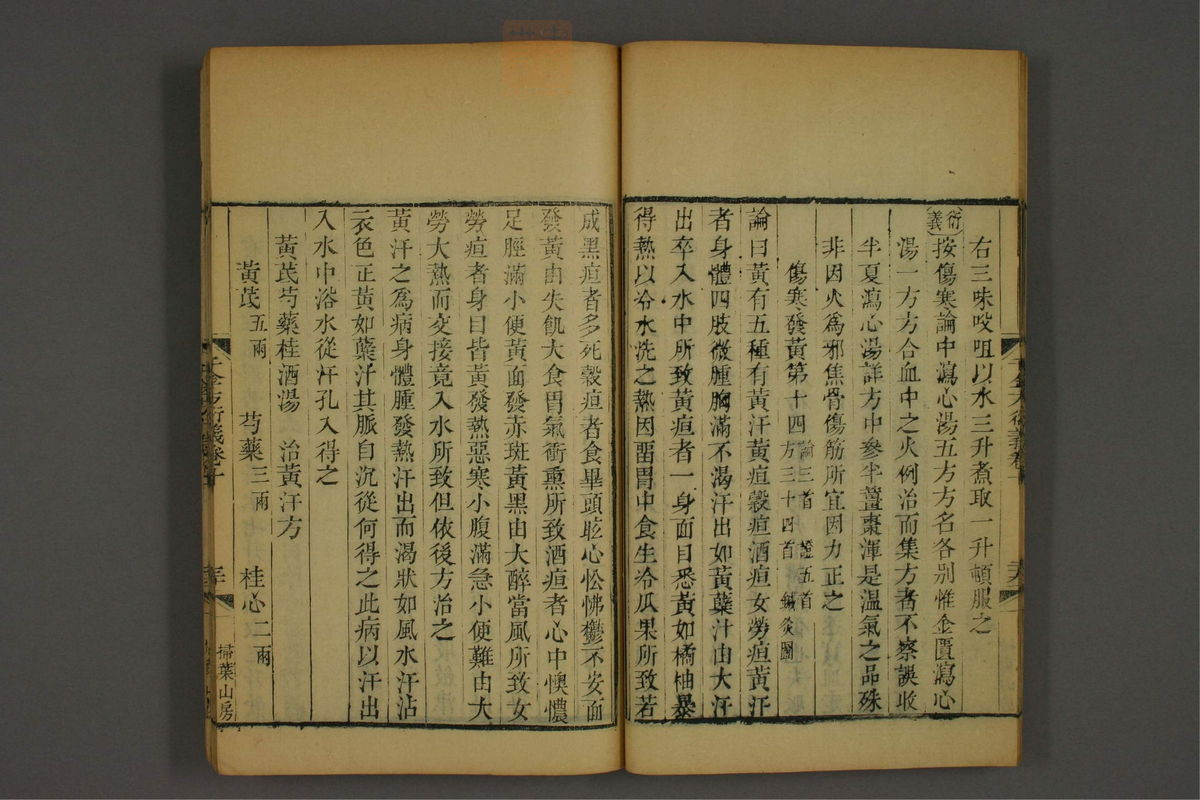 右三味㕮咀以水三升煮取一升頓服之
衍義
按傷寒論中瀉心湯五方方名各別惟金匱瀉心
湯一方方合血中之火例治而集方者不察誤收
半夏瀉心湯詳方中參半薑棗渾是溫氣之品殊
非因火為邪焦骨傷筋所宜因力正之
傷寒發黃第十四
論三首 證五首
方三十四首 鍼灸圖
論曰黃有五種有黃汗黃疸穀疸酒疸女勞疸黃汗
者身體四肢微腫胸滿不渴汗出如黃蘗汁由大汗
出卒入水中所致黃疸者一身面目悉黃如橘柚暴
得熱以冷水洗之熱因畱胃中食生冷瓜果所致若
成黑疸者多死穀疸者食畢頭眩心忪怫鬱不安面
發黃由失飢大食胃氣衝熏所致酒疸者心中懊憹
足脛滿小便黃面發赤斑黃黑由大醉當風所致女
勞疸者身目皆黃發熱惡寒小腹滿急小便難由大
勞大熱而交接竟入水所致但依後方治之
黃汗之為病身體腫發熱汗出而渴狀如風水汗沾
衣色正黃如蘗汁其脈自沉從何得之此病以汗出
入水中浴水從汗孔入得之
黃芪芍藥桂酒湯 治黃汗方
黃芪五兩 芍藥三兩 桂心二兩
千金方衍義卷十
掃葉山房